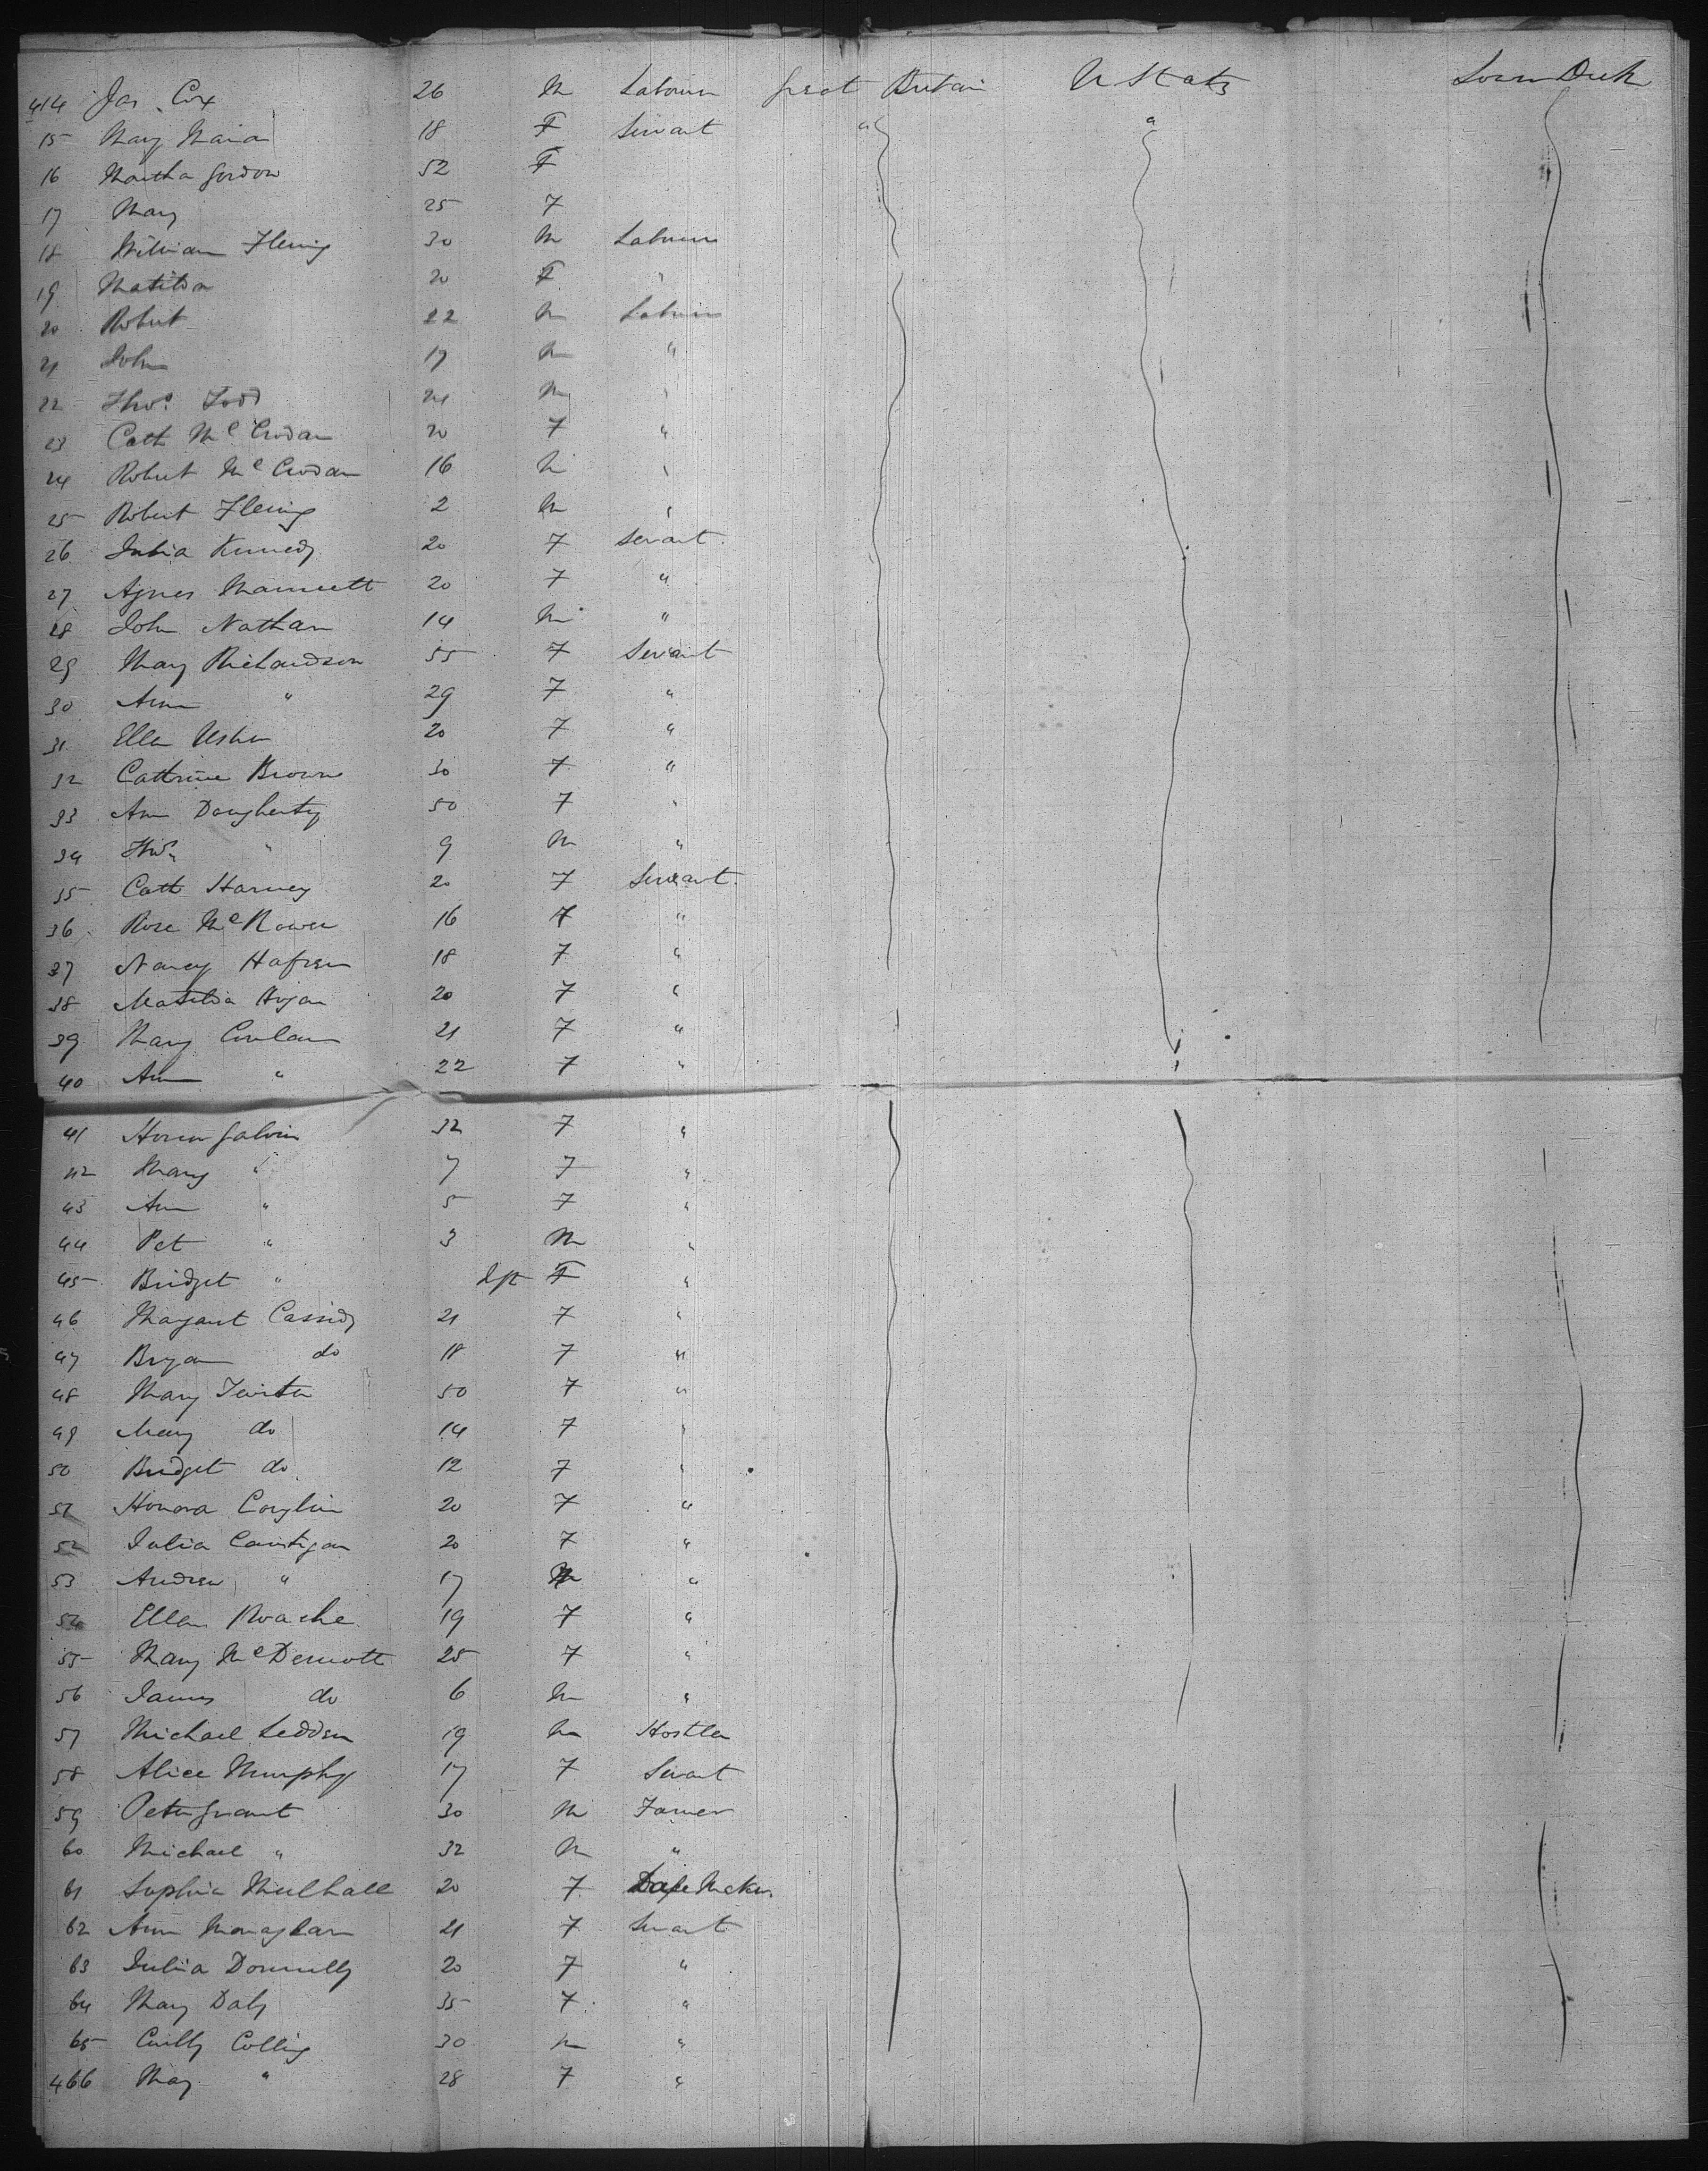 414 Jas. Cox 26 M Labourer Great Britain U States Lower Deck
15 Mary Maria 18 F Servant " "
16 Martha Gordon 52 F
17 Mary 25 F
18 William Fleming 30 M Labourer
19 Matilda 20 F "
20 Robert 22 M Labourer
21 John 17 M "
22 Thos. Todd 21 M "
23 Cath McCrodan 20 F "
24 Robert McCrodan 16 M "
25 Robert Fleming 2 M "
26 Julia Kennedy 20 F Servant
27 Agnes 20 F "
28 John Nathan 14 M "
29 Mary Richardson 55 F Servant
30 Ann " 29 F "
31 Ellen Usher 20 F "
32 Cathrine Browne 30 F "
33 Ann Dougherty 50 F "
34 Thos. " 9 M "
35 Cath Harvey 20 F Servant
36 Rose 16 F "
37 Nancy 18 F "
38 Matilda 20 F "
39 Mary 21 F "
40 Ann " 22 F "
41 Honor Galvin 32 F "
42 Mary " 7 F "
43 Ann " 5 F "
44 Pat " 3 M "
45 Bridget " F "
46 Margaret Cassidy 21 F "
47 Bryan do 18 F "
48 Mary 50 F "
49 Mary do 14 F "
50 Bridget do 12 F "
51 Honora Coughlin 20 F "
52 Julia Cantigan 20 F "
53 Andrew " 17 M "
54 Ellen Roache 19 F "
55 Mary McDermott 25 F "
56 James do 6 M "
57 Michael Ledden 19 M Hostler
58 Alice Murphy 17 F Servant
59 Peter Grant 30 M Farmer
60 Michael " 32 M "
61 Sophia Mulhall 20 F Maker
62 Ann Monaghan 21 F Servant
63 Julia Donnelly 20 F "
64 Mary Daly 35 F "
65 Collins 30 M "
466 May " 28 F "